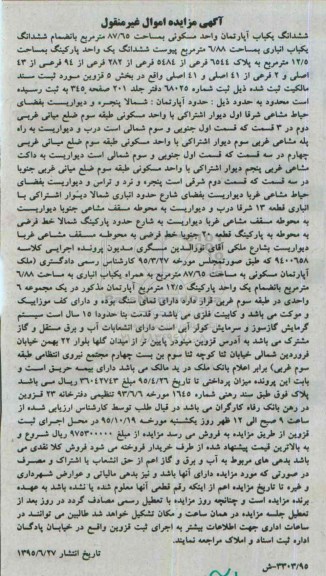 آگهی مزایده اموال غیرمنقول
ششدانگ یکباب آپارتمان واحد مسکونی بمساحت ۸۷/۶۵ مترمربع بانضمام ششدانگ
یکباب انباری بمساحت ۶/۸۸ مترمربع پیوست ششدانگ یک واحد پارکینگ بمساحت
۱۲/۵ مترمربع به پلاک ۶۵۴۴ فرعی از ۵۴۸۴ فرعی از ۲۸۲ فرعی از ۹۴ فرعی از ۴۳
اصلی و ۲ فرعی از ۴۱ اصلی و ۴۱ اصلی واقع در بخش ۵ قزوین مورد ثبت سند
مالکیت ثبت شده ذیل ثبت شماره ۶۸۰۲۵ دفتر جلد ۲۰۱ صفحه ۳۴۵ به ثبت رسیده
است محدود به حدود ذیل : حدود آپارتمان : شمالا پنجره و دیواریست بفضای
حیاط مشاعی شرقا اول دیوار اشتراکی با واحد مسکونی طبقه سوم ضلع میانی غربی
دوم در ۳ قسمت که قسمت اول جنوبی و سوم شمالی است درب و دیواریست به راه
پله مشاعی غربی سوم دیوار اشتراکی با واحد مسکونی طبقه سوم ضلع میانی غربی
چهارم در سه قسمت که قسمت اول جنوبی و سوم شمالی است دیواریست به داکت
مشاعی غربی پنجم دیوار اشتراکی با واحد مسکونی طبقه سوم ضلع میانی غربی جنوبا
در سه قسمت که قسمت دوم شرقی است پنجره و نرد و تراس و دیواریست بفضای
حیاط مشاعی غربا دیواریست بفضای شارع حدود انباری شمالا دیوار اشتراکی با
انباری قطعه ۱۳ شرقا درب و دیواریست به محوطه مسقف مشاعی جنوبا دیواریست
به محوطه مسقف مشاعی غربا دیواریست به شارع حدود پارکینگ شمالا خط فرضی
به محوطه به پارکینگ قطعه ۲۰ جنوبا خط فرضی به محوطه مسقف مشاعی غربا
دیواریست بشارع ملکی آقای نورالدین عسگری مدیون پرونده اجرایی کلاسه
۹۴۰۰۶۵۸ که طبق صورتمجلس مورخه ۹۵/۳/۲۷ کارشناس رسمی دادگستری (ملک
آپارتمان مسکونی به مساحت ۸۷/۶۵ مترمربع به همراه یکباب انباری به مساحت ۶/۸۸
مترمربع بانضمام یک واحد پارکینگ ۱۲/۵ مترمربع آپارتمان مذکور در یک مجموعه ۶
واحدی در طبقه سوم غربی قرار دارد دارای نمای سنگ بوده و دارای کف موزاییک
و موکت می باشد و کابینت فلزی می باشد و قدمت بنا حدودا ۱۵ سال است سیستم
گرمایش گازسوز و سرمایش کولر آبی است دارای انشعابات آب و برق مستقل و گاز
مشترک می باشد به آدرس قزوین مینودر پایین تر از میدان گلها بلوار ۲۲ بهمن خیابان
فروردین شمالی خیابان ثنا کوچه ثنا سوم بن بست چهارم مجتمع نیروی انتظامی طبقه
سوم غربی) برابر اعلام بانک ملک در ید مالک می باشد دارای بیمه حریق است و
بابت این پرونده میزان پرداختی تا تاریخ ۹۵/۴/۲۶ مبلغ ۳۶۰۴۲۷۴۳ ریال می باشد
پلاک فوق طبق سند رهنی شماره ۱۶۴۵ مورخه ۹۳/۶/۶ تنظیمی دفترخانه ۲۳ قزوین
در رهن بانک رفاه کارگران می باشد در قبال طلب توسط کارشناس ارزیابی شده از
ساعت ۹ صبح الی ۱۲ ظهر روز یکشنبه مورخه ۹۵/۱۰/۱۹ در محل اجرای ثبت
قزوین از طریق مزایده به فروش می رسد مزایده از مبلغ ۹۷۵۳۰۰۰۰۰ ریال شروع و
به بالاترین قیمت پیشنهاد شده از طرف خریدار فروخته می شود فروش کلا نقدی می
باشد بدهی های مربوط به آب و برق و گاز اعم از حق انشعاب یا اشتراک و مصرف
در صورتی که مورد مزایده دارای آنها باشد و نیز بدهی مالیاتی و عوارض شهرداری
و غیره تا تاریخ مزایده اعم از اینکه رقم قطعی آنها معلوم شده یا نشده باشد به عهده
برنده مزایده است و چنانچه روز مزایده با تعطیل رسمی مصادف گردد در روز بعد از
تعطیل جلسه مزایده در همان ساعت و مکان تشکیل خواهد شد طالبین می توانند در
ساعات اداری جهت اطلاعات بیشتر به اجرای ثبت قزوین واقع در خیابان پادگان
اداره ثبت اسناد و املاک مراجعه نمایند.
تاریخ انتشار ۱۳۹۵/۶/۲۷
۳۳۰۳/۹۵-ش